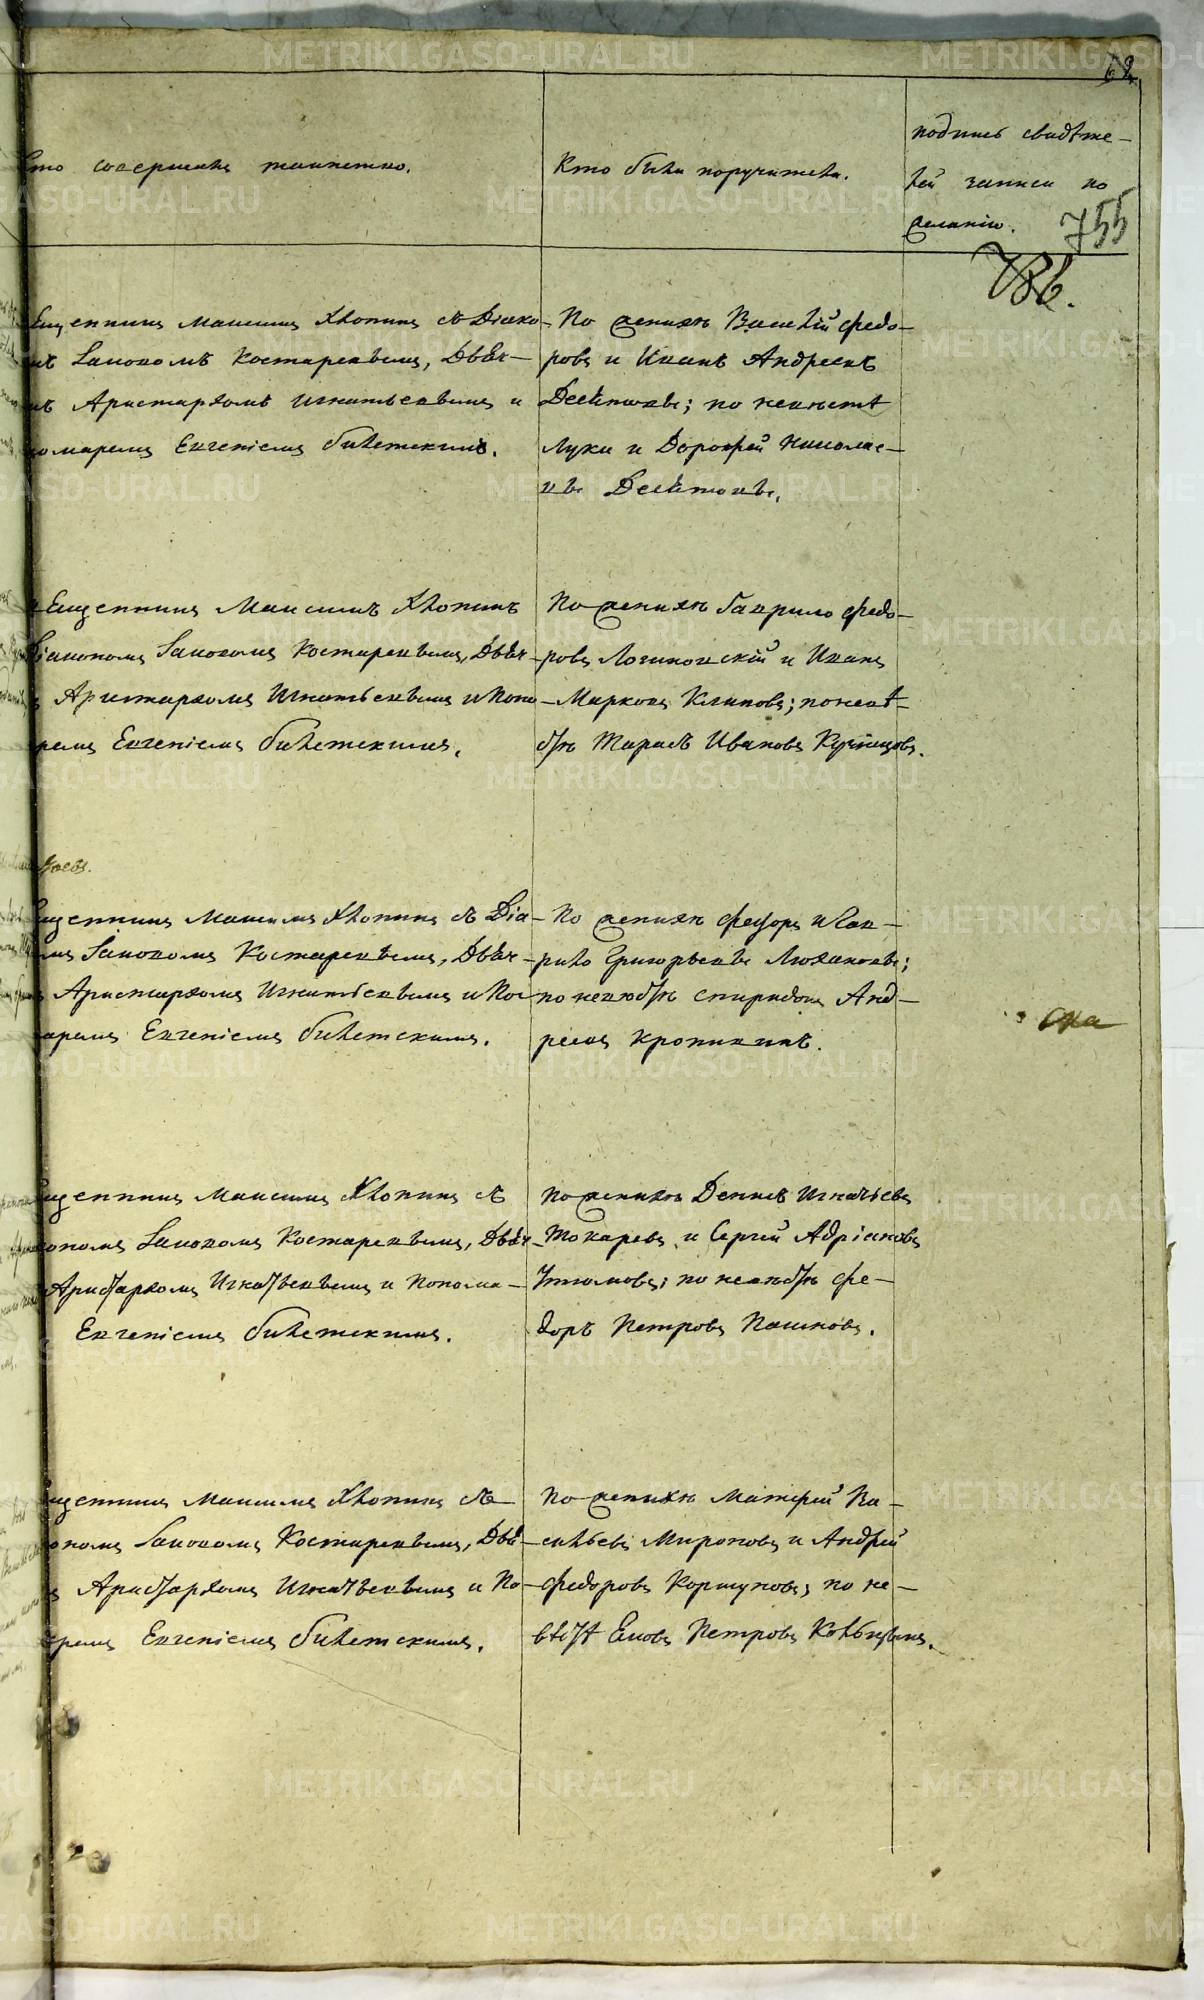 62
Кто совершалъ таинство.
Кто были поручители.
подпись свидѣте-
лей записи по
желанію.
755
786.
Священникъ Максимъ Хлопинъ съ Діако-
номъ Іаковомъ Костаревымъ, Дьяч-
комъ Аристархомъ Игнатьевымъ и
пономаремъ Евгеніемъ Билетскимъ.
По женихѣ Василій Федо-
ровъ и Иванъ Андреевъ
Десятковы; по невѣстѣ
Лука и Дорофей Николае-
вы Десятковы.
Священникъ Максимъ Хлопинъ
Діакономъ Іаковомъ Костаревымъ, Дьяч-
Аристархомъ Игнатьевымъ и Поно-
маремъ Евгеніемъ Билетскимъ.
По женихѣ Гаврило Федо-
ровъ Логиновскій и Иванъ
Марковъ Климовъ; по невѣ-
стѣ Тарасъ Ивановъ Кузнецовъ.
Священникъ Максимъ Хлопинъ съ Діа-
Іаковомъ Костаревымъ, Дьяч-
Аристархомъ Игнатьевымъ и По-
маремъ Евгеніемъ Билетскимъ.
По женихѣ Федоръ и Гав-
рило Григорьевы Люхановы;
по невѣстѣ Спиридонъ Анд-
реевъ Кропикинъ.
Священникъ Максимъ Хлопинъ съ
Діакономъ Іаковомъ Костаревымъ, Дьяч-
Аристархомъ Игнатьевымъ и Понома-
Евгеніемъ Билетскимъ.
По женихѣ Денисъ Игнатьевъ
Токаревъ и Сергей Адріановъ
Утюмовъ; по невѣстѣ Фе-
доръ Петровъ Пашковъ.
Священникъ Максимъ Хлопинъ съ
Діакономъ Іаковомъ Костаревымъ, Дья-
Аристархомъ Игнатьевымъ и По-
маремъ Евгеніемъ Билетскимъ.
По женихѣ Матфей Ва-
сильевъ Мироновъ и Андрей
Федоровъ Коршуновъ; по не-
вѣстѣ Емова Петровъ
METRIKI.GASO-URAL.RU